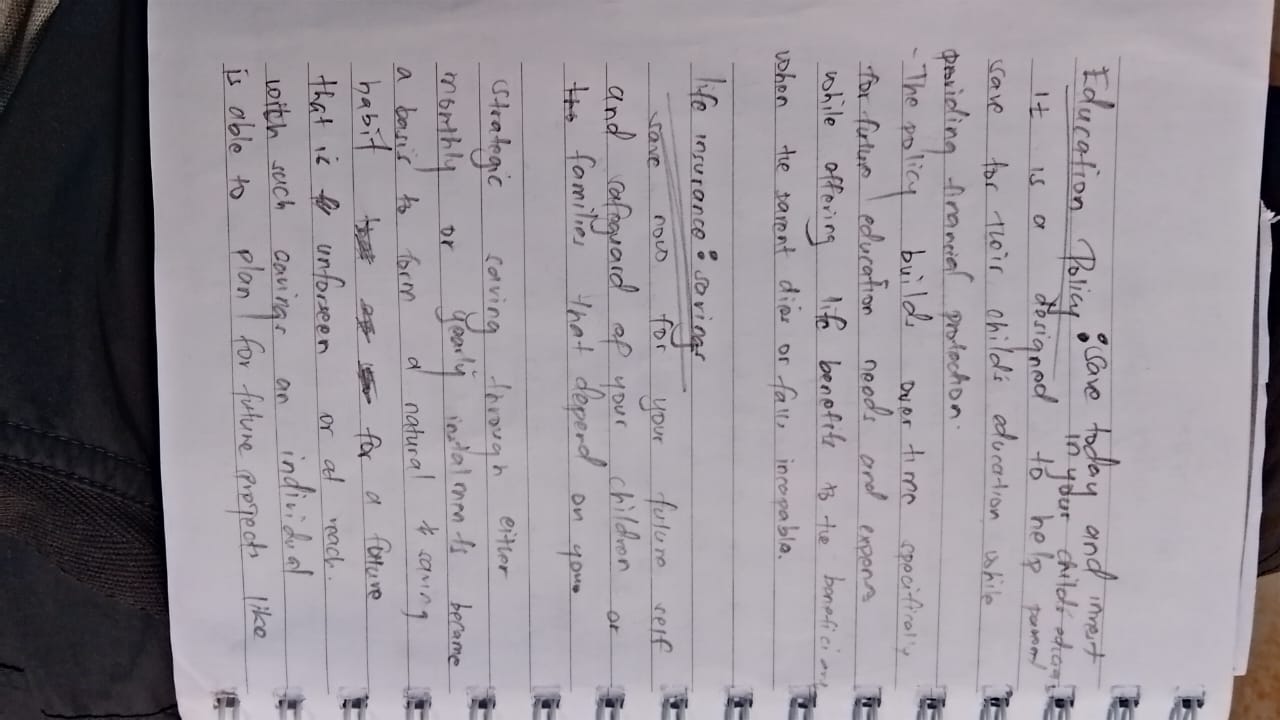 Education Policy: save today and invest
in your child's
It is a designed to help parent
save for their child's education while
providing financial protection.
- The policy builds over time specifically
for future education needs and expens
while offering life benefits to the beneficiary
when the parent dies or falls incapable.
life insurance: savings
save now for your future self
and safeguard of your children or
families that depend on you.
Strategic saving through either
monthly or yearly instalments became
a basis to form a natural saving
habit for a future
that is unforseen or at reach.
with such savings an individual
is able to plan for future projects like